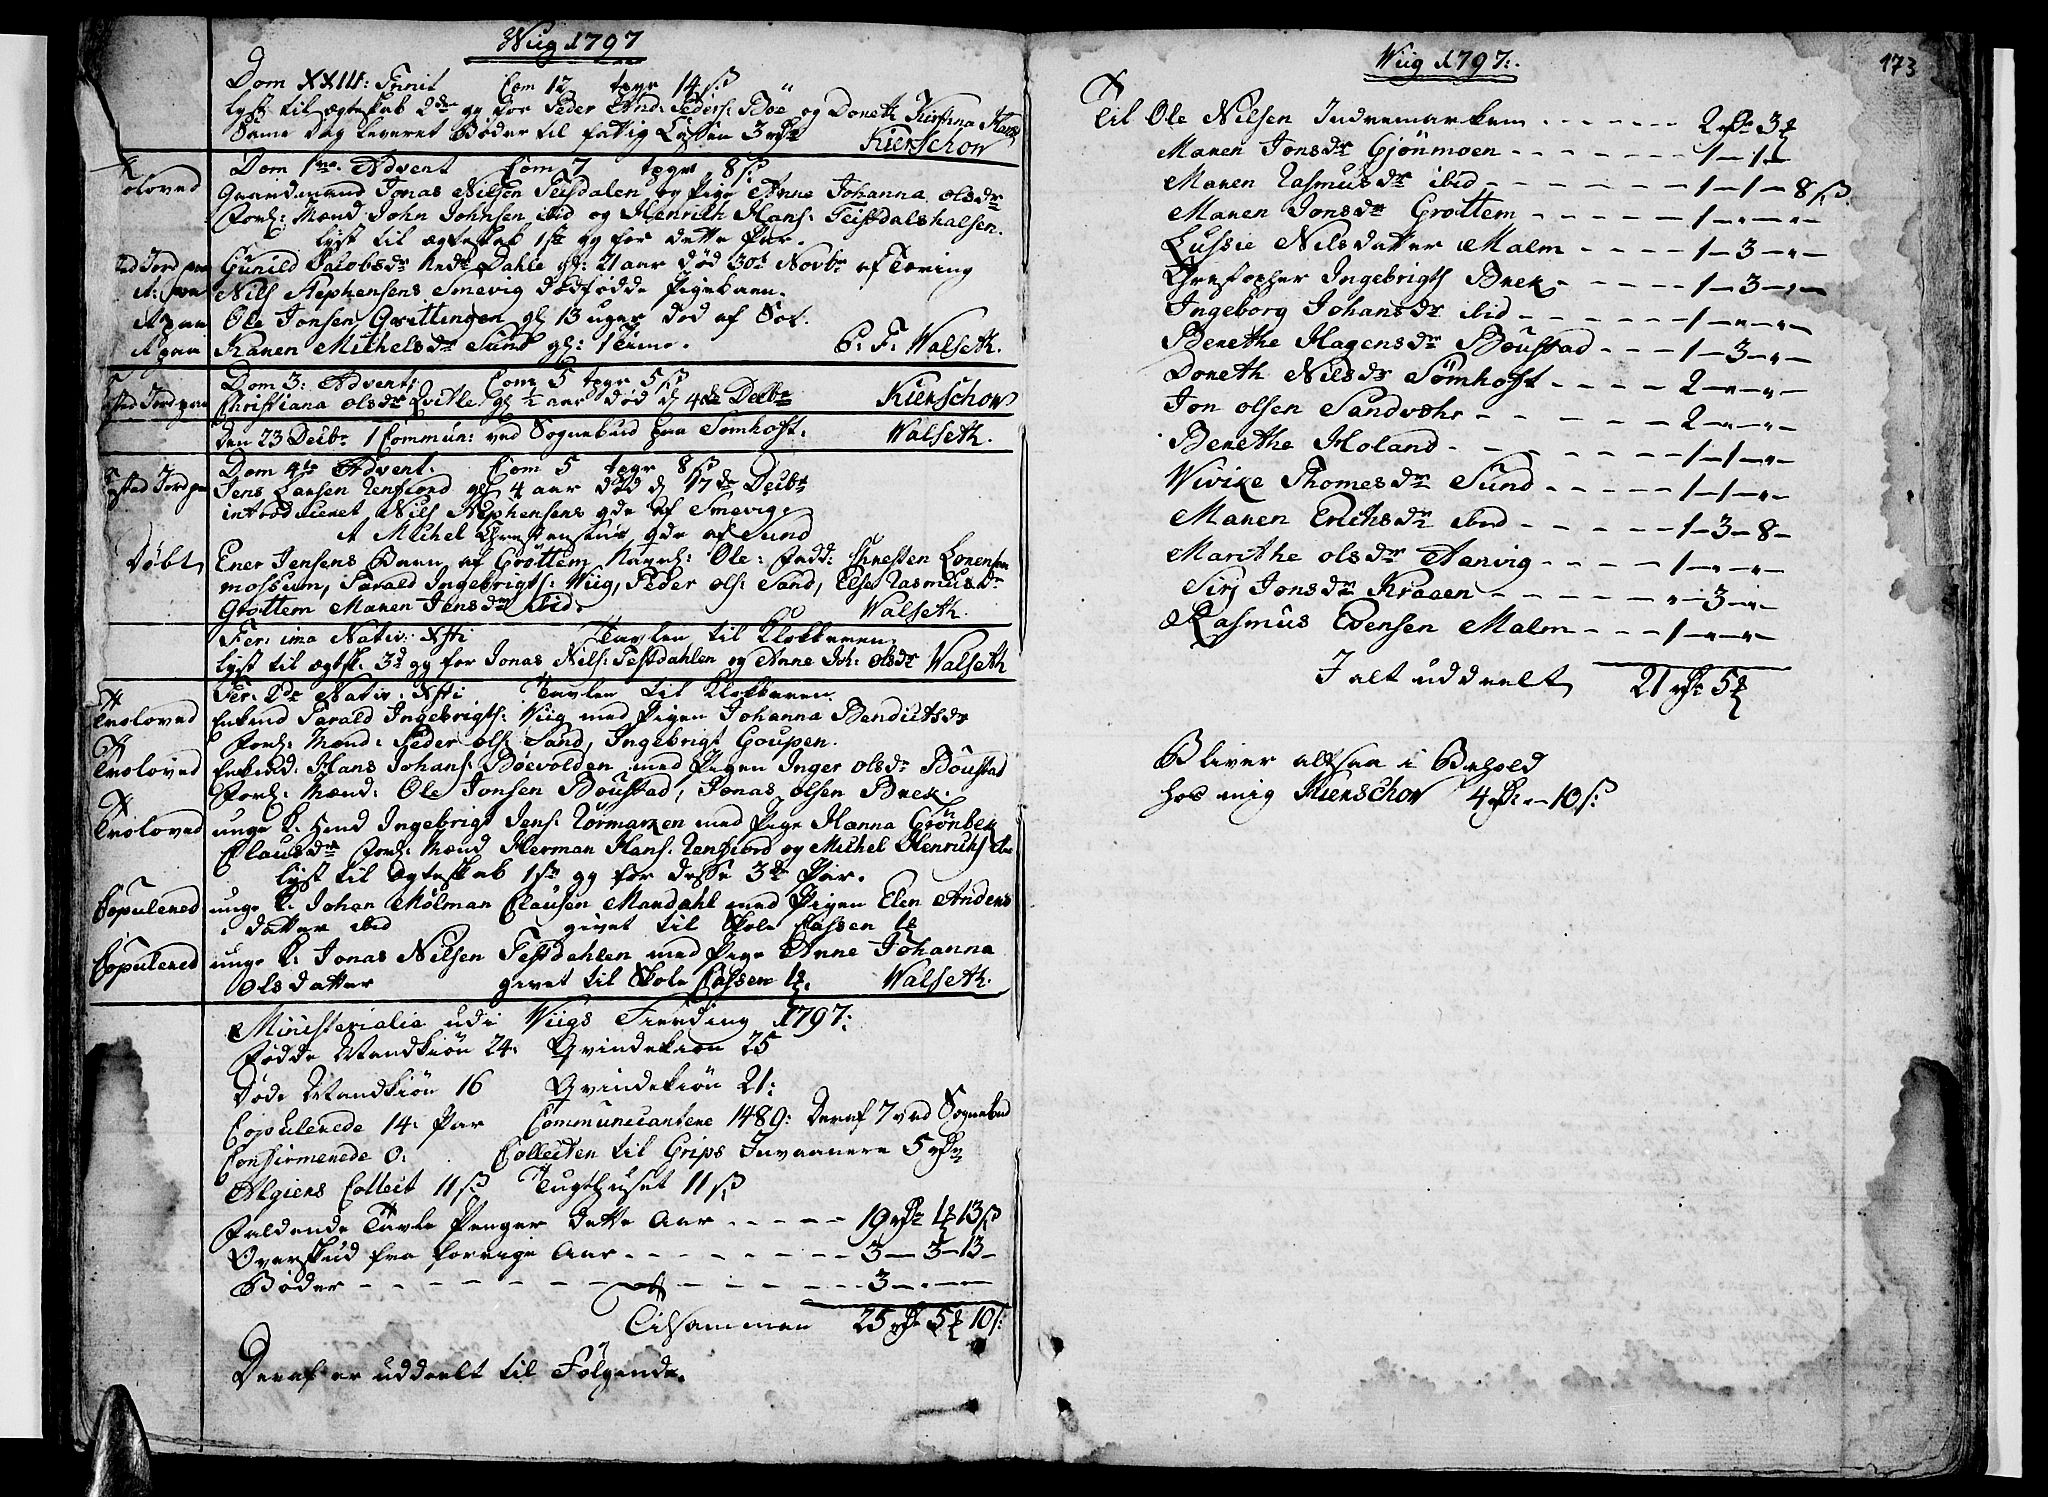 Wiig 1797
Dom XXIII: Trinit Com 12 tavr 14 ß
lyst til ægteskab 2de gg for Peder And: Peders: Boe og Doreth Kirstina
Same Dag leveret Bøder til fattig Cassen 3 rdr Kierschow
Dom 1ma Advent Com 7 tavr 8 ß
Troloved Grandmand Jonas Nilsen Teisdalen og Pige Anne Johanna olsdr
Forl: Mænd John Johnsen ibid og Henrich Hans: Teistdalshalsen.
lyst til ægteskab 1ste gg for dette Par.
Gunild Jacobsdr Dahle gl: 21 aar død 30te Novbr af Tæring
Nils Stephensens Smevig dødfødde Pigebarn.
Ole Jonsen Grittingen gl 13 uger død af Sot.
Karen Mikkelsdr Sund gl: 1 Time. C. F. Walseth.
Dom 3: Advent: Com 5 tavr 5 ß
kasted Jord paa Christiana olsdr Qvitle gl ½ aar død d 4de Decbr Kierschow
den 23 Decbr 1 Commun: ved Sognebud paa Somhoft. Walseth.
Dom 4te Advent. Com 5 tavr 8 ß
kasted Jord paa Jens Larsen gl 4 aar død d 17de Decbr
introduceret Nils Stephensens qde af Smevig
dt Michel Christensens qde af Sund
Døbt Ener Jensens Barn af Gröttem Navnl: Ole: Fadd: Christen
Mossum, Tarald Ingebrigts: Wiig, Peder ols: Sand, Else Rasmusdr
Grottem Maren Jensdr ibid. Walseth.
Fer: ima Nativ: Xsti Tavlen til Klokkeren
lyst til ægtesk: 3de gg for Jonas Nils: Testdahlen og Anne Joh: olsdr Walseth
Fer: 2de Nativ: Xsti Tavlen til Klokkeren
Troloved Enkemd Tarald Ingebrigts: Viig med Pigen Johanna Bendictsdr
Forl: Mænd: Peder ols: Sand, Ingebrigt Goupen.
Troloved Enkemd: Hans Johans: Böevolden med Pigen Inger olsdr Boustad
Forl: Mænd: Ole Jonsen Boustad, Jonas olsen Brek.
Troloved unge K: Smd Ingebrigt Jens: med Pige Hanna Grönbek
Clausdr Forl: Mænd Herman Hans: og Michel Henrichs ibid
lyst til Ægteskab 1ste gg for desse 3de Par.
Copulered unge K: Johan Mölman Clausen Mandahl med Pigen Elen Anders
datter ibid givet til Skole Cassen 1
Copulered unge K: Jonas Nilsen Testdahlen med Pige Anne Johanna
Olsdatter givet til Skole Cassen 1. Walseth.
Ministerialia udi Viigs Fierding 1797:
Fødde Mandkiön 24. Qvindekion 25
Døde Mandkiön 16 Qvindekiön 21:
Copulerede 14. Par Communicantere 1489: Deraf 7 ved Sognebud
Confirmerede 0. Collecten til Grips Invaanere 5 rdr
Algiers Collect 11 ß Tugthuset 11 ß
Faldende Tavle Penger dette Aar ----- 19 rdr 1 13 ß
Overskud fra forrige Aar ------- 3 - 3 - 13 -
Bøder ------- 3 - - -
Tilsammen 25 rdr 5 10 ß:
Deraf er uddeelt til Følgende.
173
Wiig 1797:.
Til Ole Nilsen Indremarken ------ 2 rdr 3
Maren Jonsdr Gjönmoen ------- 1 - 1
Maren Rasmusdr ibid ------- 1 - 1 - 8 ß
Maren Jonsdr Grottem ------ 1 - " - " -
Lussie Nilsdatter Malm ---- 1 - 3 - " -
Christopher Ingebrigts Brek ----- 1 - 3 - " -
Ingeborg Johansdr ibid ------ 1 - " - " -
Berethe Hagensdr Boustad --- 1 - 3 - " -
Doreth Nilsdr Sömhoft ---- 2 - " - " -
Jon olsen Sandvær ----- 2 - " - " -
Berethe Holand ------- 1 - 1 - " -
Wivike Thomesdr Sund ---- 1 - 1 - " -
Maren Erichsdr ibid ----- 1 - 3 - 8 -
Marithe olsdr Aarvig ---- 1 - " - " -
Sirj Jonsdr Kraaen ------ " - 3 - " -
Rasmus Edensen Malm --- 1 - " - " -
I alt uddeelt 21 rdr 5
Bliver altsaa i Behold
hos mig Kierschow 4 rdr - 10 ß: